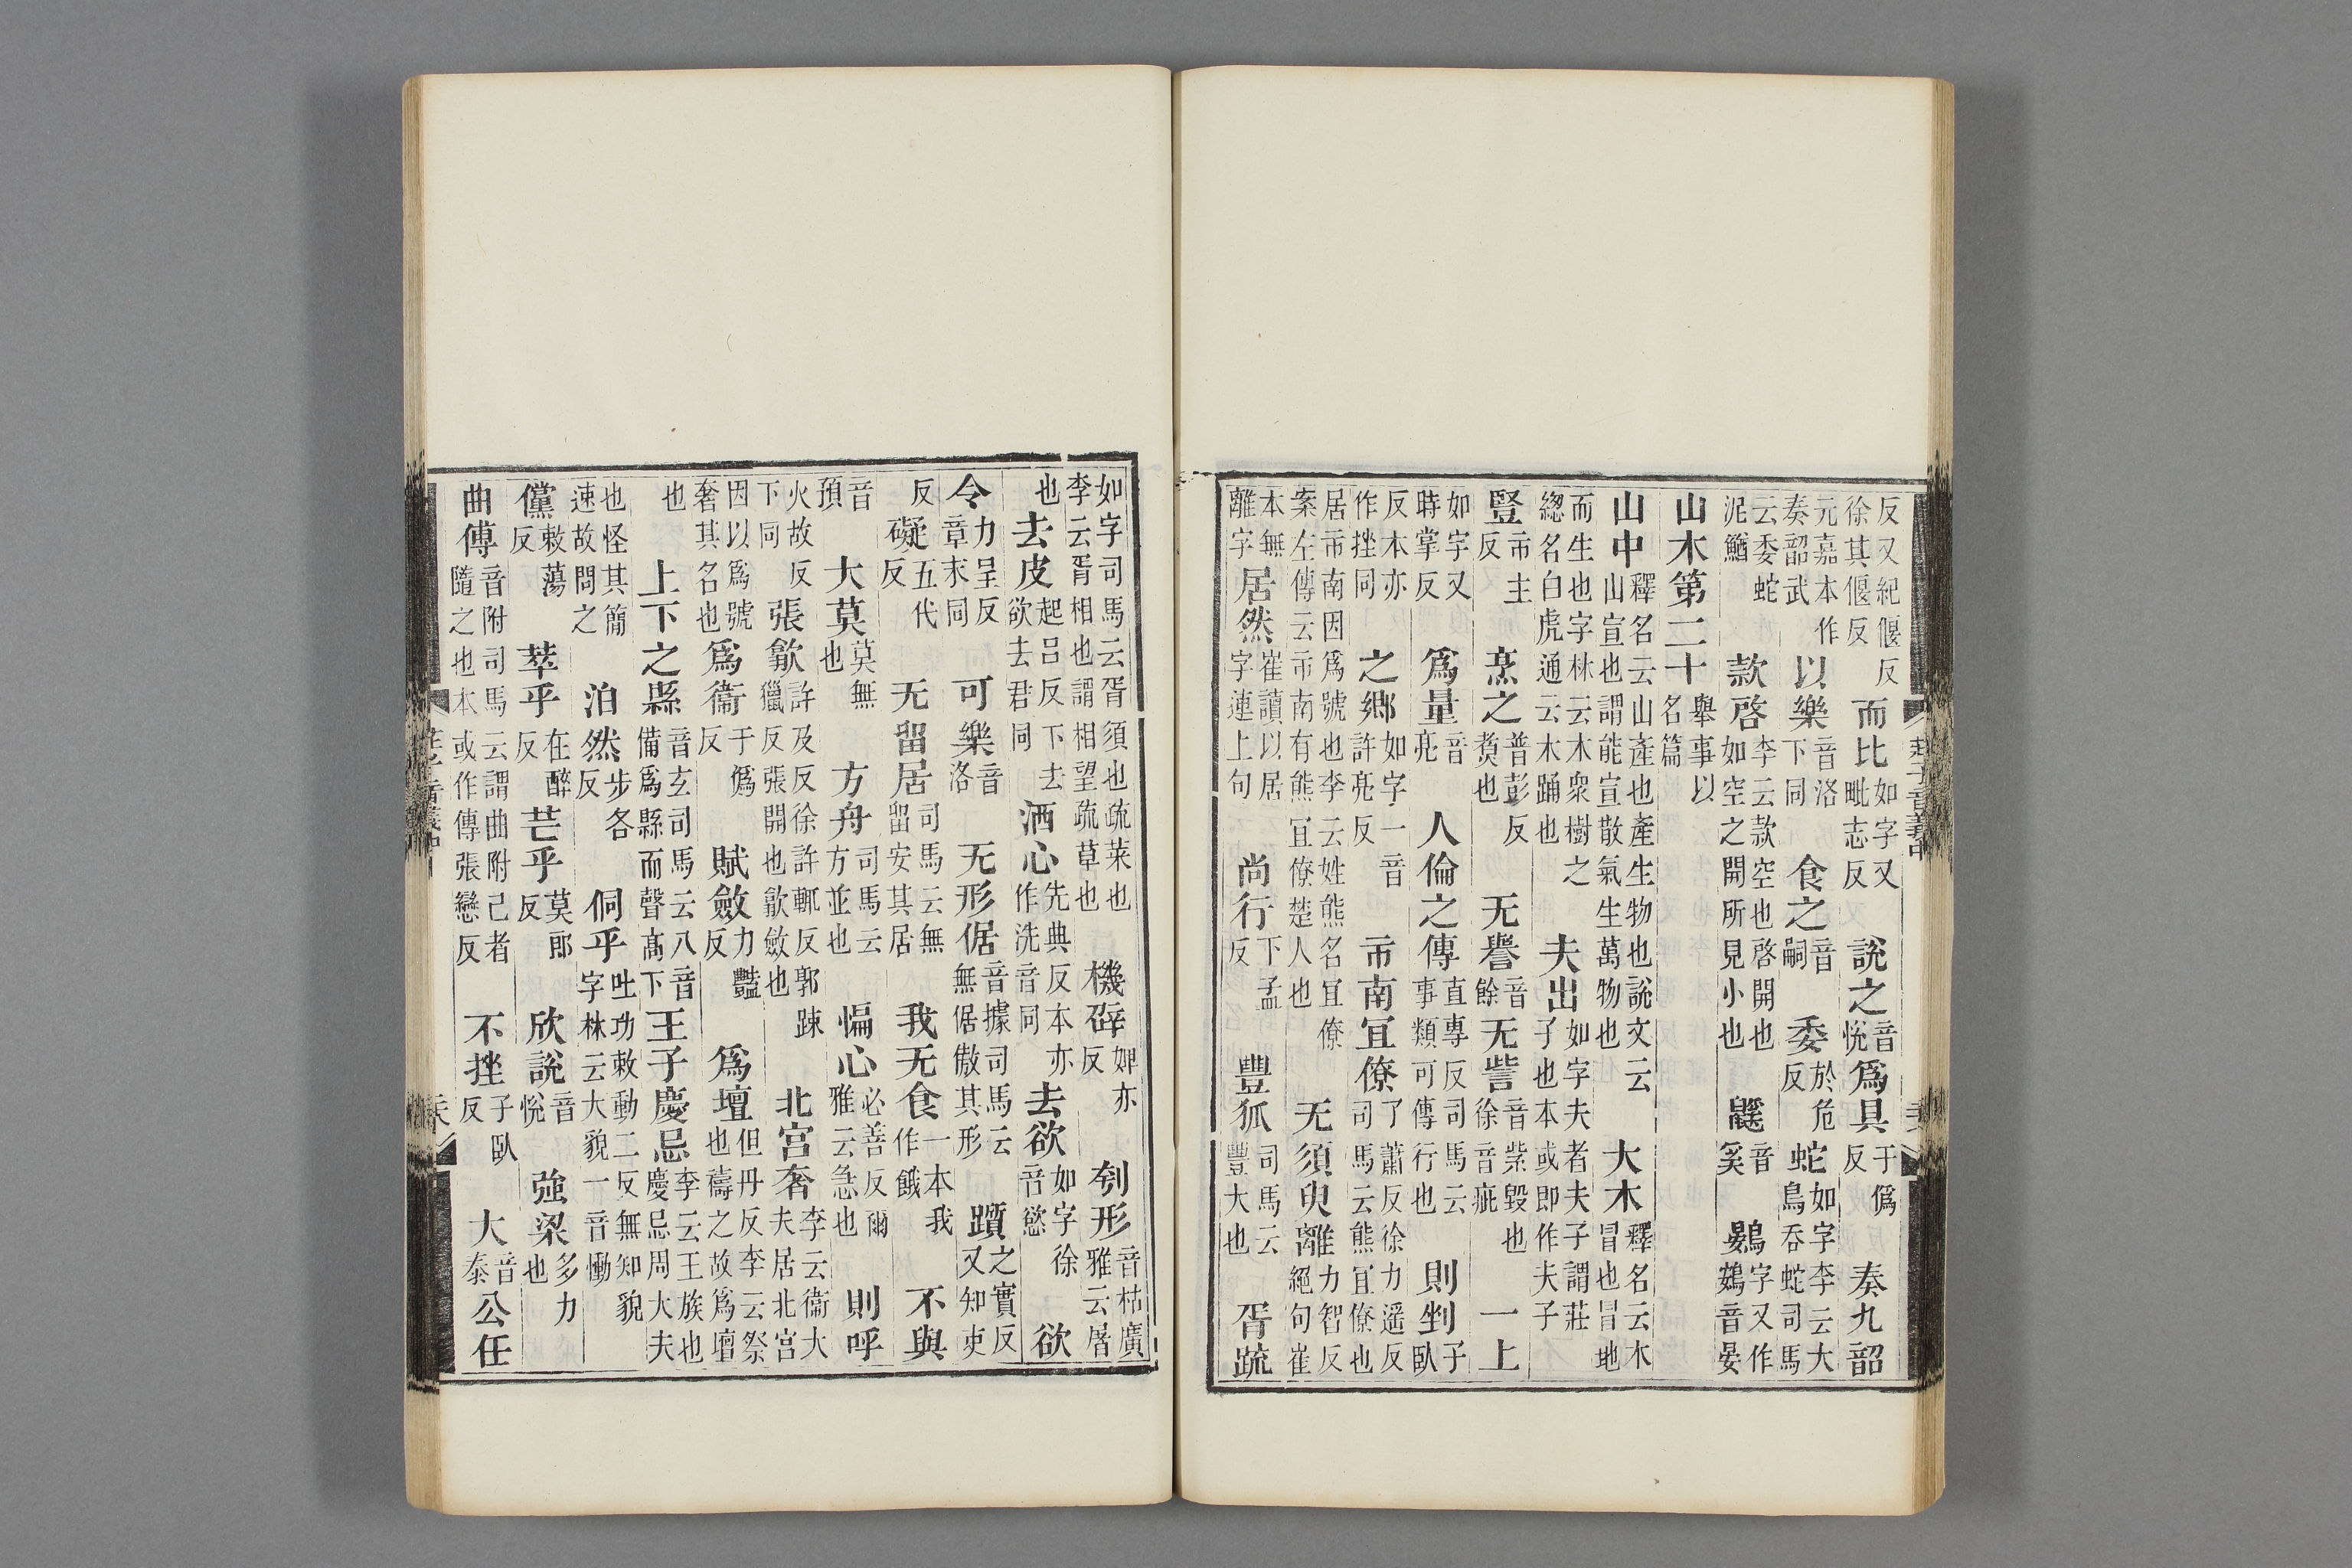 反又紀偃反徐其偃反而比如字又毗志反說之音悅爲具于僞反奏九韶
元嘉本作奏韶武以樂音洛下同食之音嗣委於危反蛇如字李云大鳥吞蛇司馬
云委蛇泥鰌款啓李云款空也啓開也如空之開所見小也鼷音奚鷃字又作鴳音晏
山木第二十舉事以名篇
山中釋名云山產也產生物也說文云山宣也謂能宣散氣生萬物也大木釋名云木冒也冒地
而生也字林云木衆樹之緫名白虎通云木踊也夫出如字夫者夫子謂莊子也本或即作夫子
豎市主反烹之普彭反煑也无譽音餘无訾音紫毀也徐音疵一上
如字又時掌反爲量音亮人倫之傳直專反司馬云事類可傳行也則剉子臥
反本亦作挫同之鄉如字一音許亮反市南宜僚了蕭反徐力遥反司馬云熊宜僚也
居市南因爲號也李云姓熊名宜僚案左傳云市南有熊宜僚楚人也无須臾離力智反絕句崔
本無離字居然崔讀以居字連上句尚行下孟反豐狐司馬云豐大也胥䟽
莊子音義中
如字司馬云胥須也䟽菜也李云胥相也謂相望䟽草也機辟婢亦反刳形音枯廣雅云屠
也去皮起呂反下去欲去君同洒心先典反本亦作洗音同去欲如字徐音慾欲
令力呈反章末同可樂音洛无形倨音據司馬云無倨傲其形躓之實反又知吏
反礙五代反无留居司馬云無留安其居我无食一本我作餓不與
音預大莫莫無也方舟司馬云方並也惼心必善反爾雅云急也則呼
火故反下同張歙許及反徐許輒反郭疎獵反張開也歙斂也北宮奢李云衞大夫居北宮
因以爲號奢其名也爲衞于僞反賦斂力豔反爲壇但丹反李云祭也禱之故爲壇
也上下之縣音玄司馬云八音備爲縣而聲高下王子慶忌李云王族也慶忌周大夫
也怪其簡速故問之泊然步各反侗乎吐功敕動二反無知貌字林云大貌一音慟
儻敕蕩反萃乎在醉反芒乎莫郎反欣說音悅強梁多力也
曲傅音附司馬云謂曲附己者隨之也本或作傳張戀反不挫子臥反大音泰公任